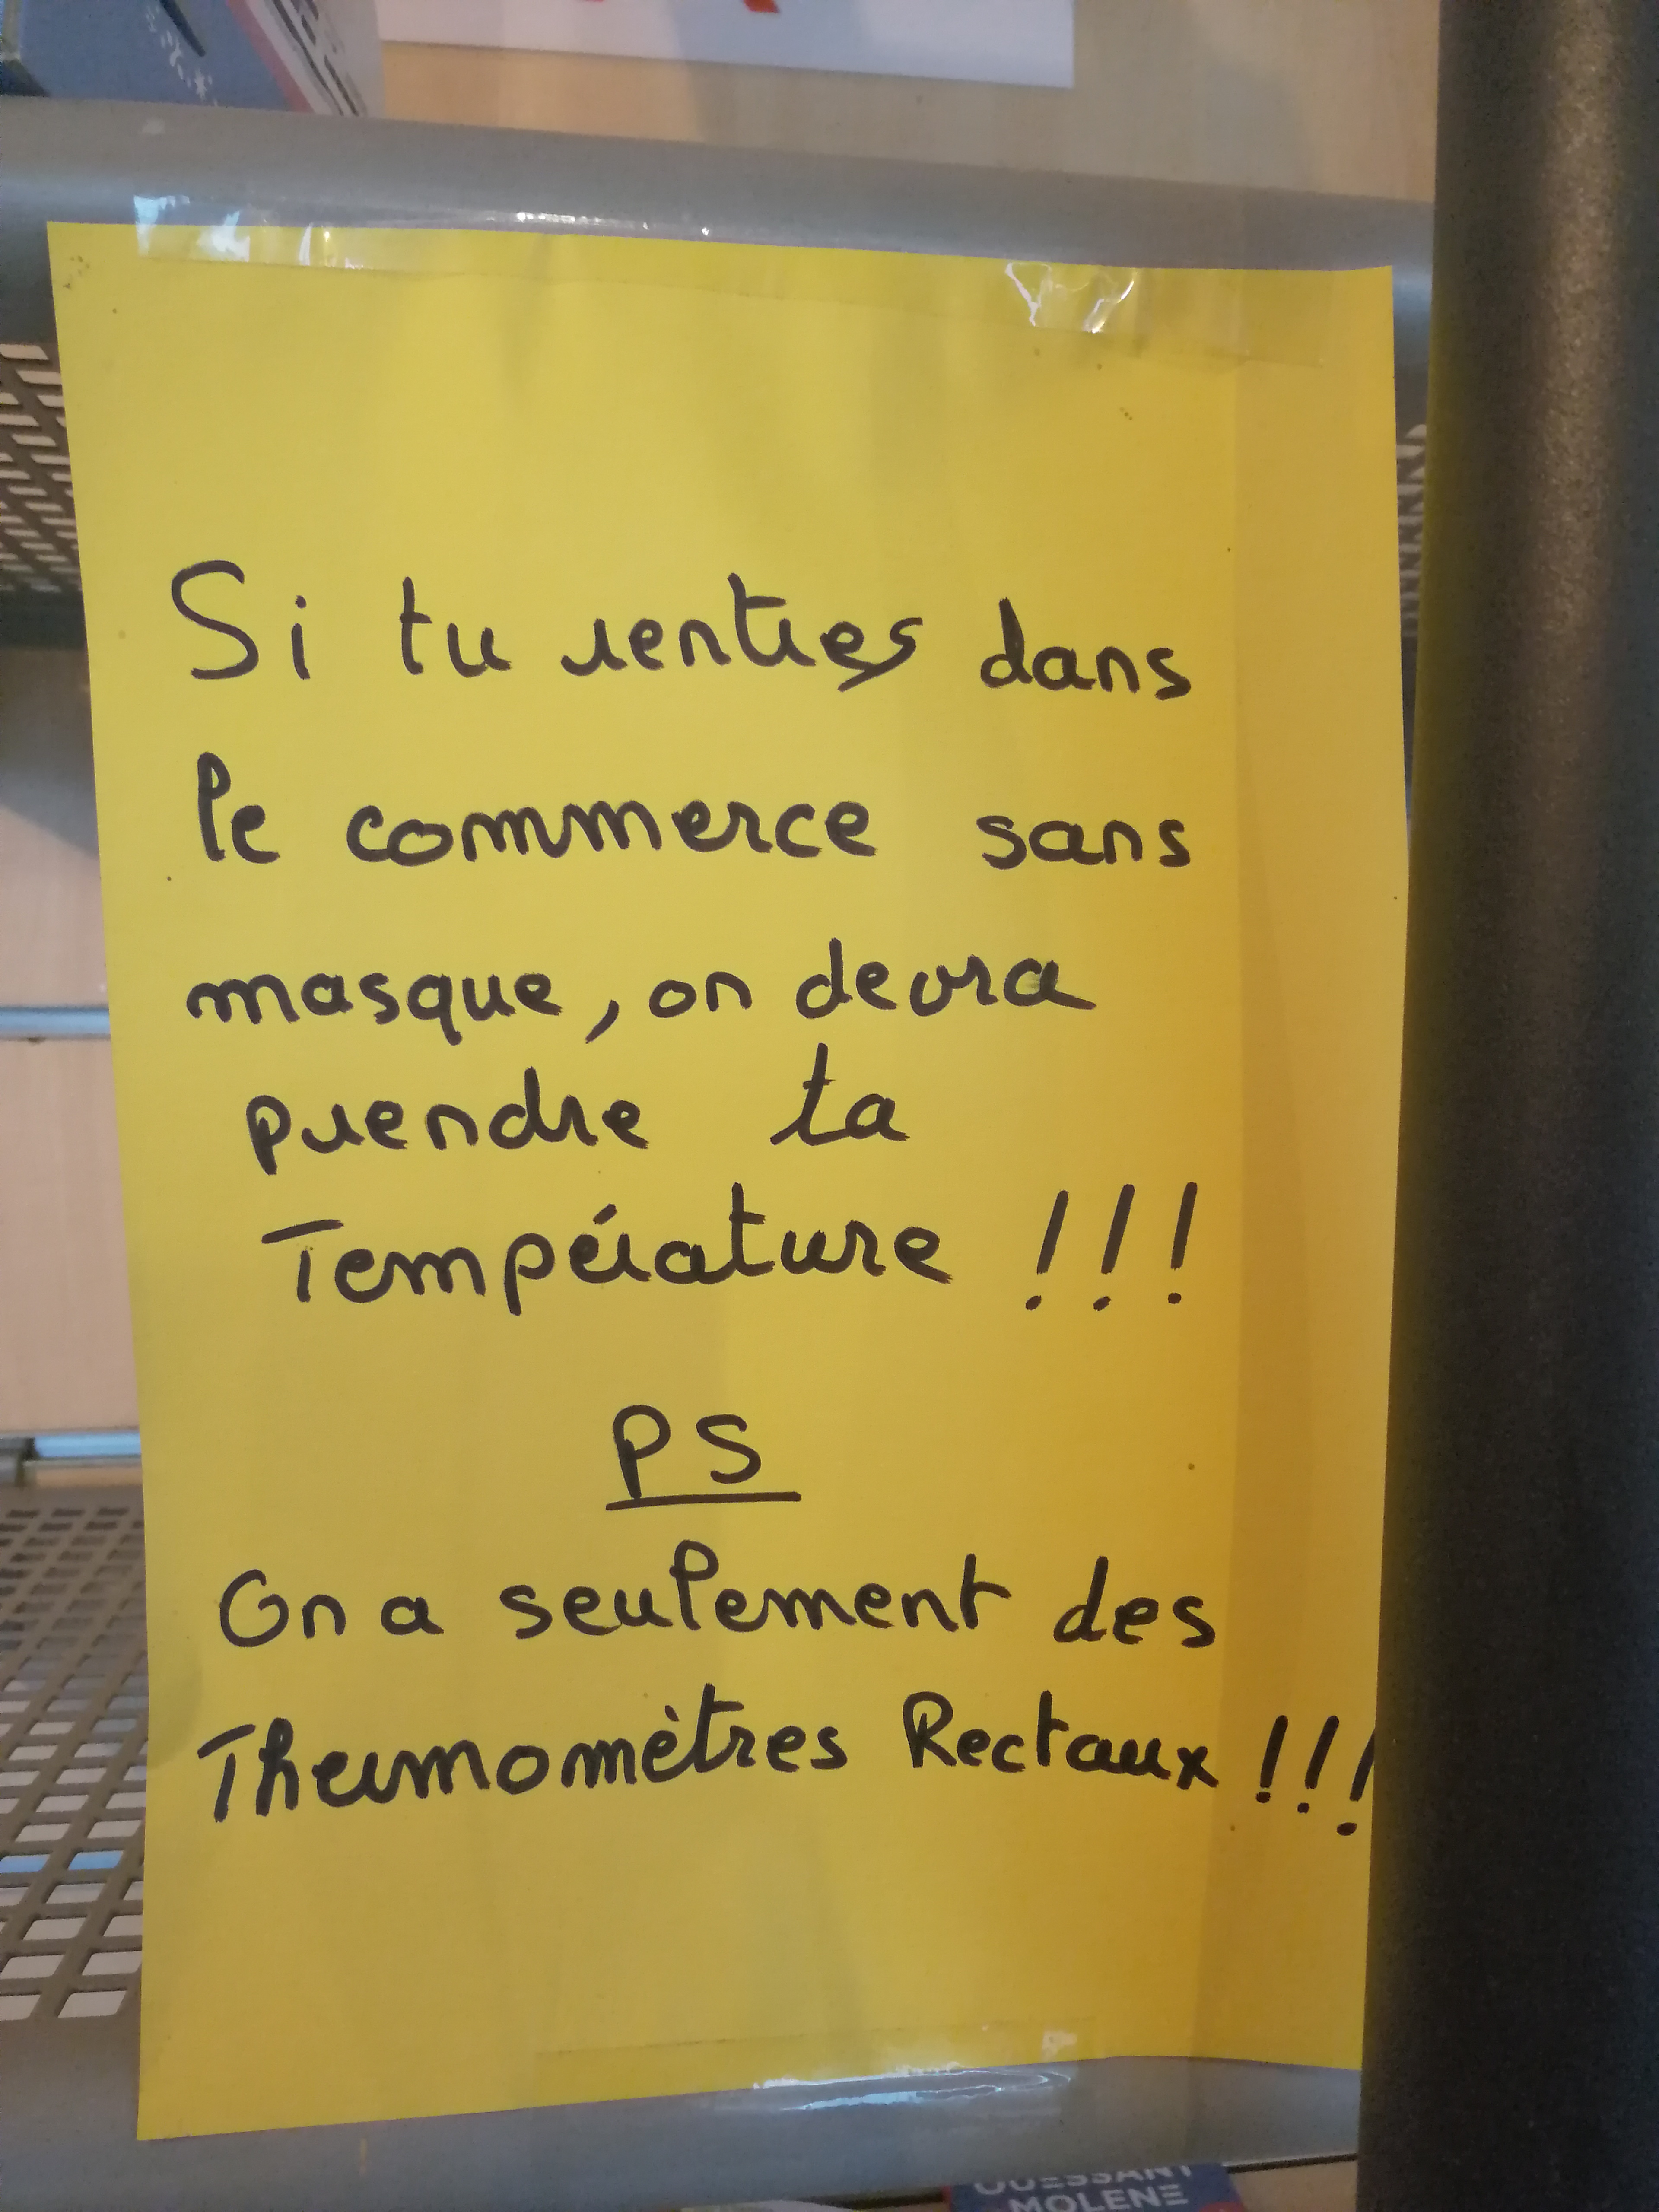 Si tu rentres dans
le commerce sans
masque, on devra
prendre ta
Température !!!
PS
On a seulement des
Thermomètres Rectaux !!!
OUESSANT
MOLENE